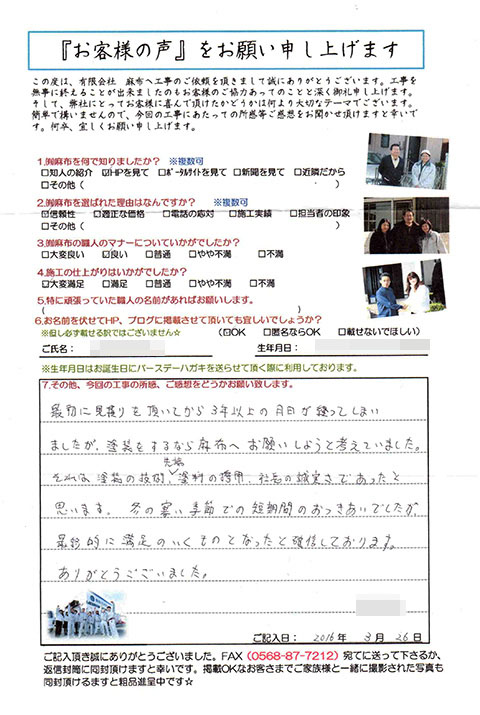 『お客様の声』をお願い申し上げます
この度は、有限会社　麻布へ工事のご依頼を頂きまして誠にありがとうございます。工事を
無事に終えることが出来ましたのもお客様のご協力あってのことと深く御礼申し上げます。
そして、弊社にとってお客様に喜んで頂けたかどうかは何より大切なテーマでございます。
簡単で構いませんので、今回の工事にあたっての所感等ご感想をお聞かせ頂けますと幸いで
す。何卒、宜しくお願い申し上げます。
1.㈲麻布を何で知りましたか？　※複数可
□知人の紹介　☑HPを見て　□ポータルサイトを見て　□新聞を見て　□近隣だから
□その他（　）
2.㈲麻布を選ばれた理由はなんですか？　※複数可
☑信頼性　□適正な価格　□電話の応対　□施工実績　□担当者の印象
□その他（　）
3.㈲麻布の職人のマナーについていかがでしたか？
□大変良い　☑良い　□普通　□やや不満　□不満
4.施工の仕上がりはいかがでしたか？
☑大変満足　□満足　□普通　□やや不満　□不満
5.特に頑張っていた職人の名前があればお願いします。
（　）
6.お名前を伏せてHP、ブログに掲載させて頂いても宜しいでしょうか？
※但し必ず載せる訳ではございません☆　（☑OK　□匿名ならOK　□載せないでほしい）
ご氏名：　生年月日：
※生年月日はお誕生日にバースデーハガキを送らせて頂く際に利用しております。
7.その他、今回の工事の所感、ご感想をどうかお願い致します。
最初に見積りを頂いてから3年以上の月日が経ってしまい
ましたが、塗装をするなら麻布へお願いしようと考えていました。
それは、塗装の技術、先端塗料の採用、社長の誠実さであったと
思います。冬の寒い季節での短期間のおつきあいでしたが
最終的に満足のいくものとなったと確信しております。
ありがとうございました。
ご記入日：　2016年　3月　26日
ご記入頂き誠にありがとうございました。FAX（0568-87-7212）宛てに送って下さるか、
返信封筒に同封頂けますと幸いです。掲載OKなお客さまでご家族様と一緒に撮影された写真も
同封頂けるますと粗品進呈中です☆